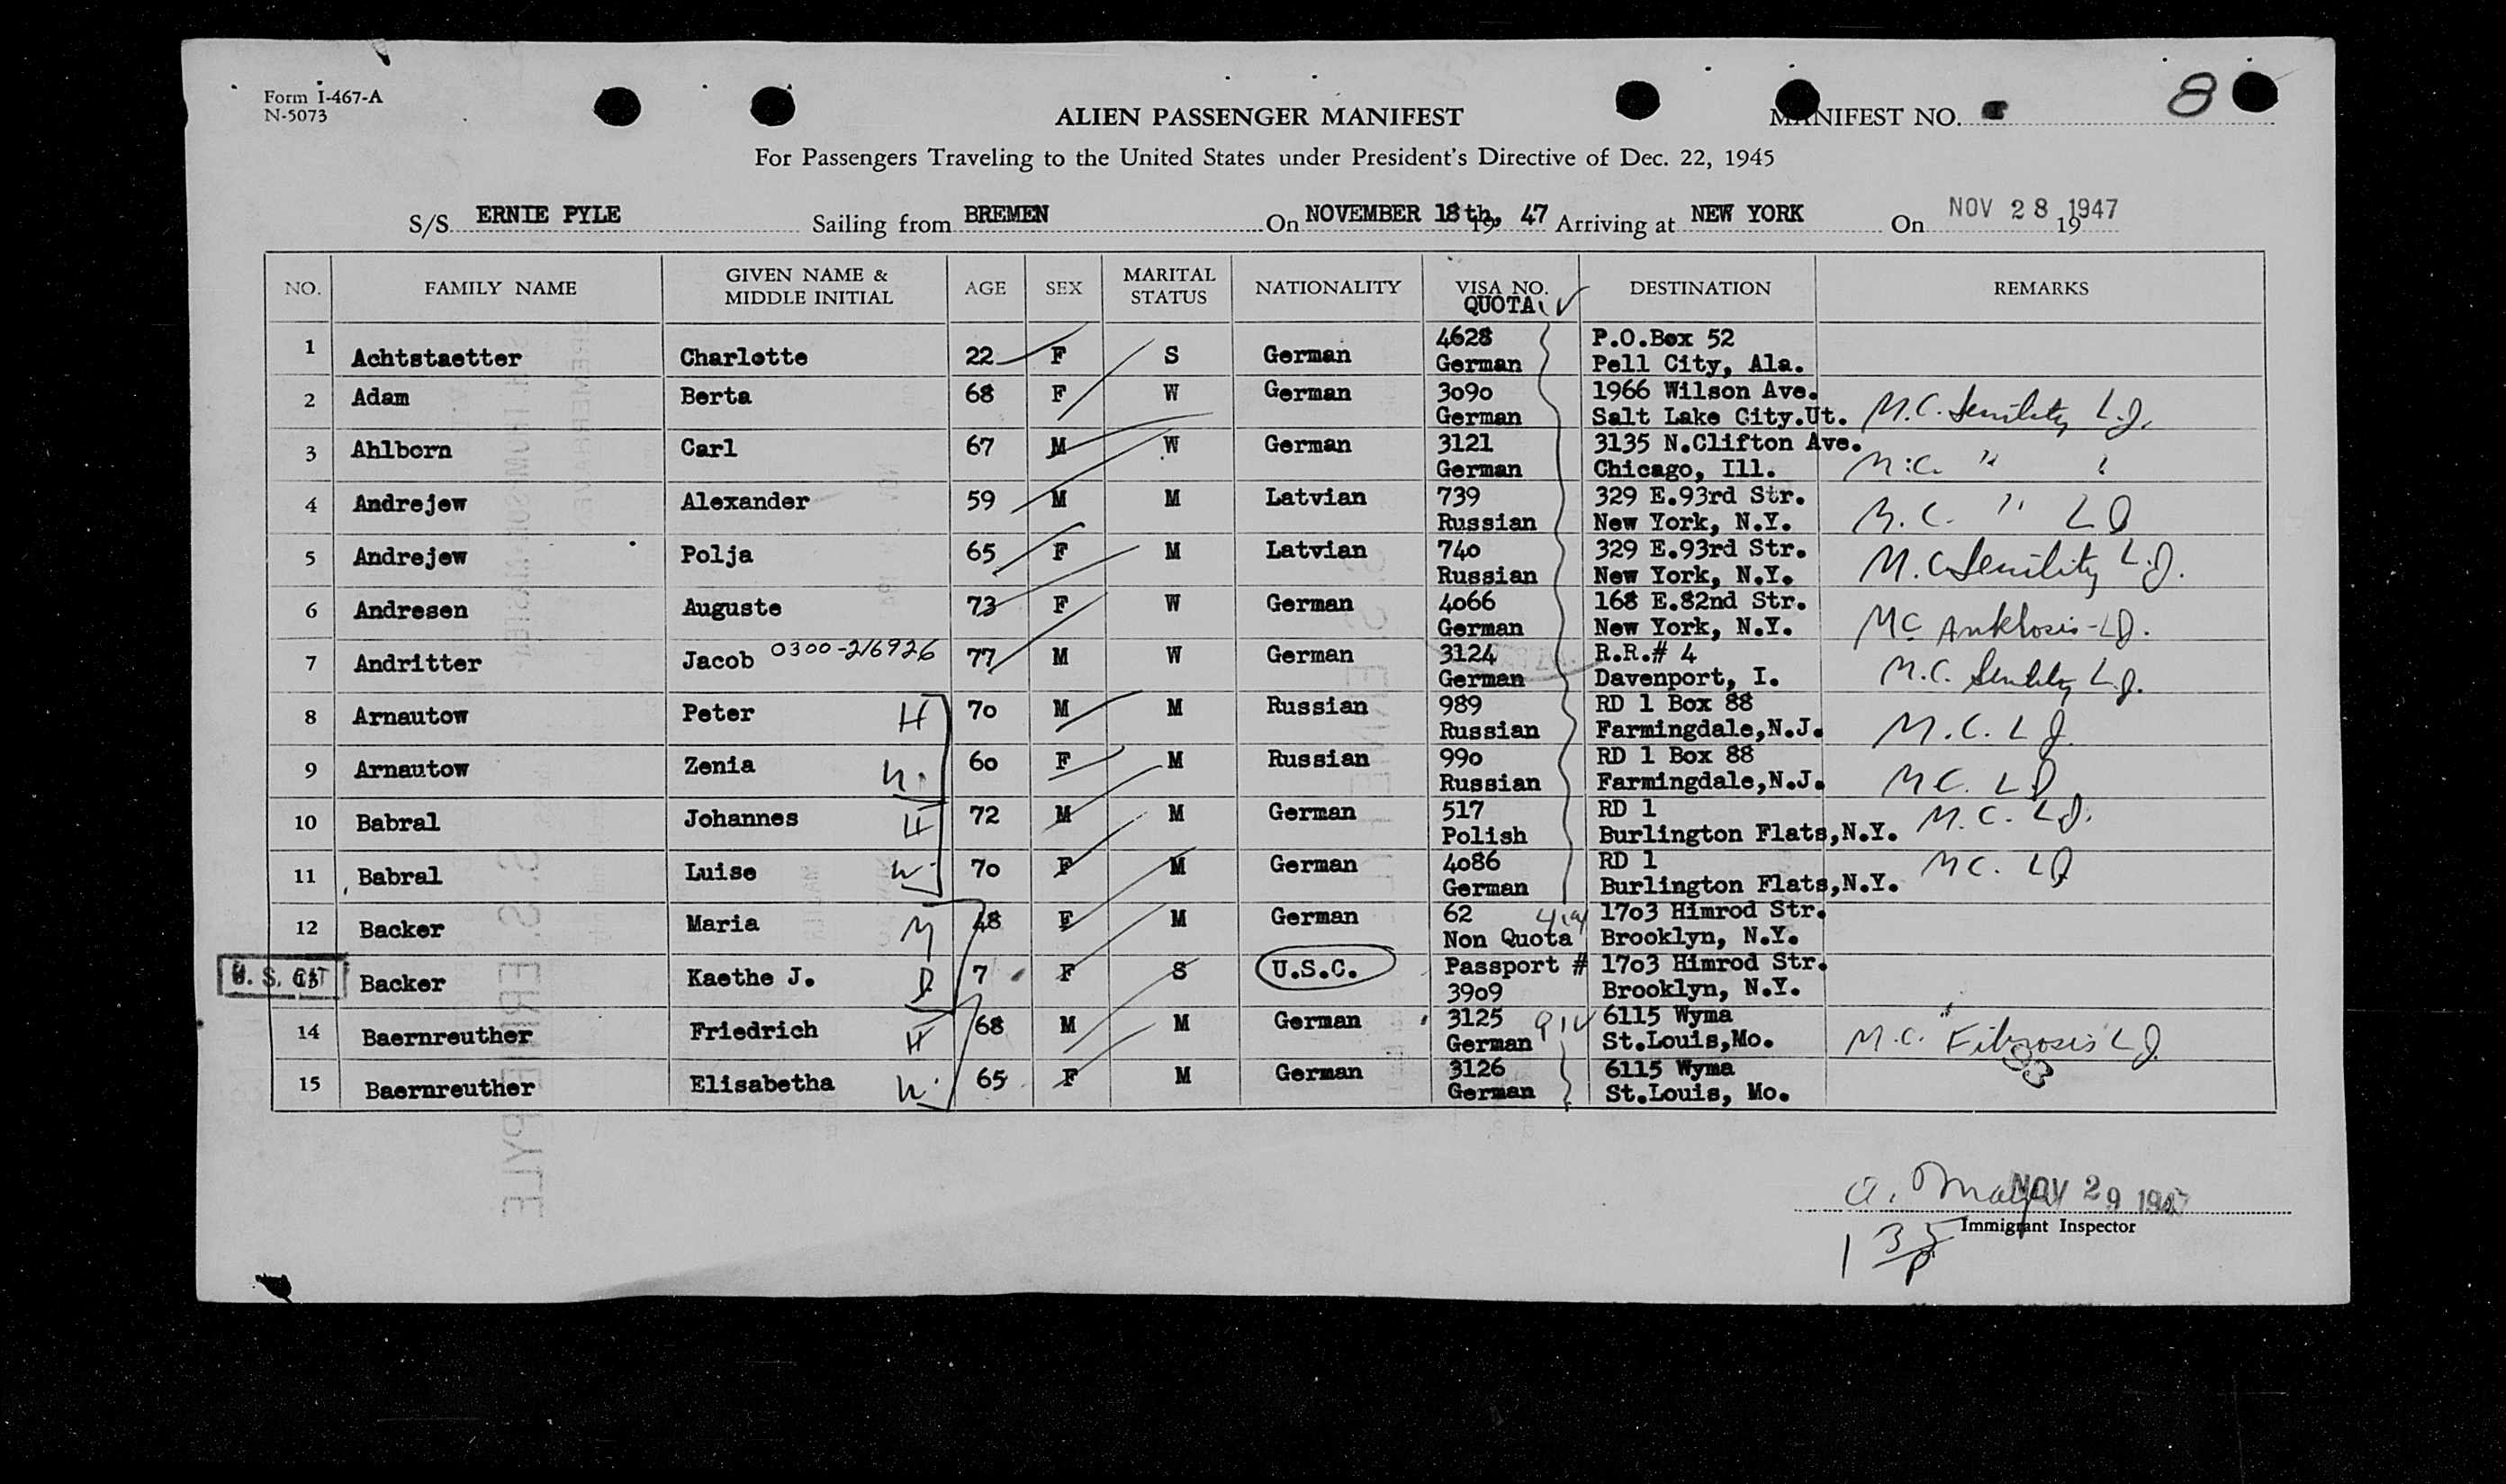 Form I-467-A
N-5073
8
ALIEN PASSENGER MANIFEST
MANIFEST NO.
For Passengers Traveling to the United States under President's Directive of Dec. 22, 1945
S/S ERNIE PYLE Sailing from BREMEN On NOVEMBER 18th, 19 47 Arriving at NEW YORK On NOV 28 1947 19
NO. FAMILY NAME GIVEN NAME & MIDDLE INITIAL AGE SEX MARITAL STATUS NATIONALITY VISA NO. QUOTA DESTINATION REMARKS
1 Achtstaetter Charlotte 22 F S German 4628 German P.O.Box 52 Pell City, Ala.
2 Adam Berta 68 F W German 3090 German 1966 Wilson Ave. Salt Lake City.Ut. M.C. Senility L.D.
3 Ahlborn Carl 67 M W German 3121 German 3135 N.Clifton Ave. Chicago, Ill. M.C. "
4 Andrejew Alexander 59 M M Latvian 739 Russian 329 E.93rd Str. New York, N.Y. M.C. " L D
5 Andrejew Polja 65 F M Latvian 740 Russian 329 E.93rd Str. New York, N.Y. M.C Senility L.D.
6 Andresen Auguste 73 F W German 4066 German 168 E.82nd Str. New York, N.Y. MC Anklosis - LD.
7 Andritter Jacob 0300-216926 77 M W German 3124 German R.R.# 4 Davenport, I. M.C. Senility L.D.
8 Arnautow Peter H 70 M M Russian 989 Russian RD 1 Box 88 Farmingdale,N.J. M.C. L D.
9 Arnautow Zenia W. 60 F M Russian 990 Russian RD 1 Box 88 Farmingdale,N.J. M C. L D
10 Babral Johannes H 72 M M German 517 Polish RD 1 Burlington Flats,N.Y. M.C. L D.
11 Babral Luise W. 70 F M German 4086 German RD 1 Burlington Flats,N.Y. M C. L D
12 Backer Maria M 48 F M German 62 Non Quota 1703 Himrod Str. Brooklyn, N.Y.
U.S. CIT 13 Backer Kaethe J. D 7 F S U.S.C. Passport # 3909 1703 Himrod Str. Brooklyn, N.Y.
14 Baernreuther Friedrich H 68 M M German 3125 German 6115 Wyma St.Louis,Mo. M.C. Fibrosis L D
15 Baernreuther Elisabetha W. 65 F M German 3126 German 6115 Wyma St.Louis, Mo.
NOV 29 1947
Immigrant Inspector